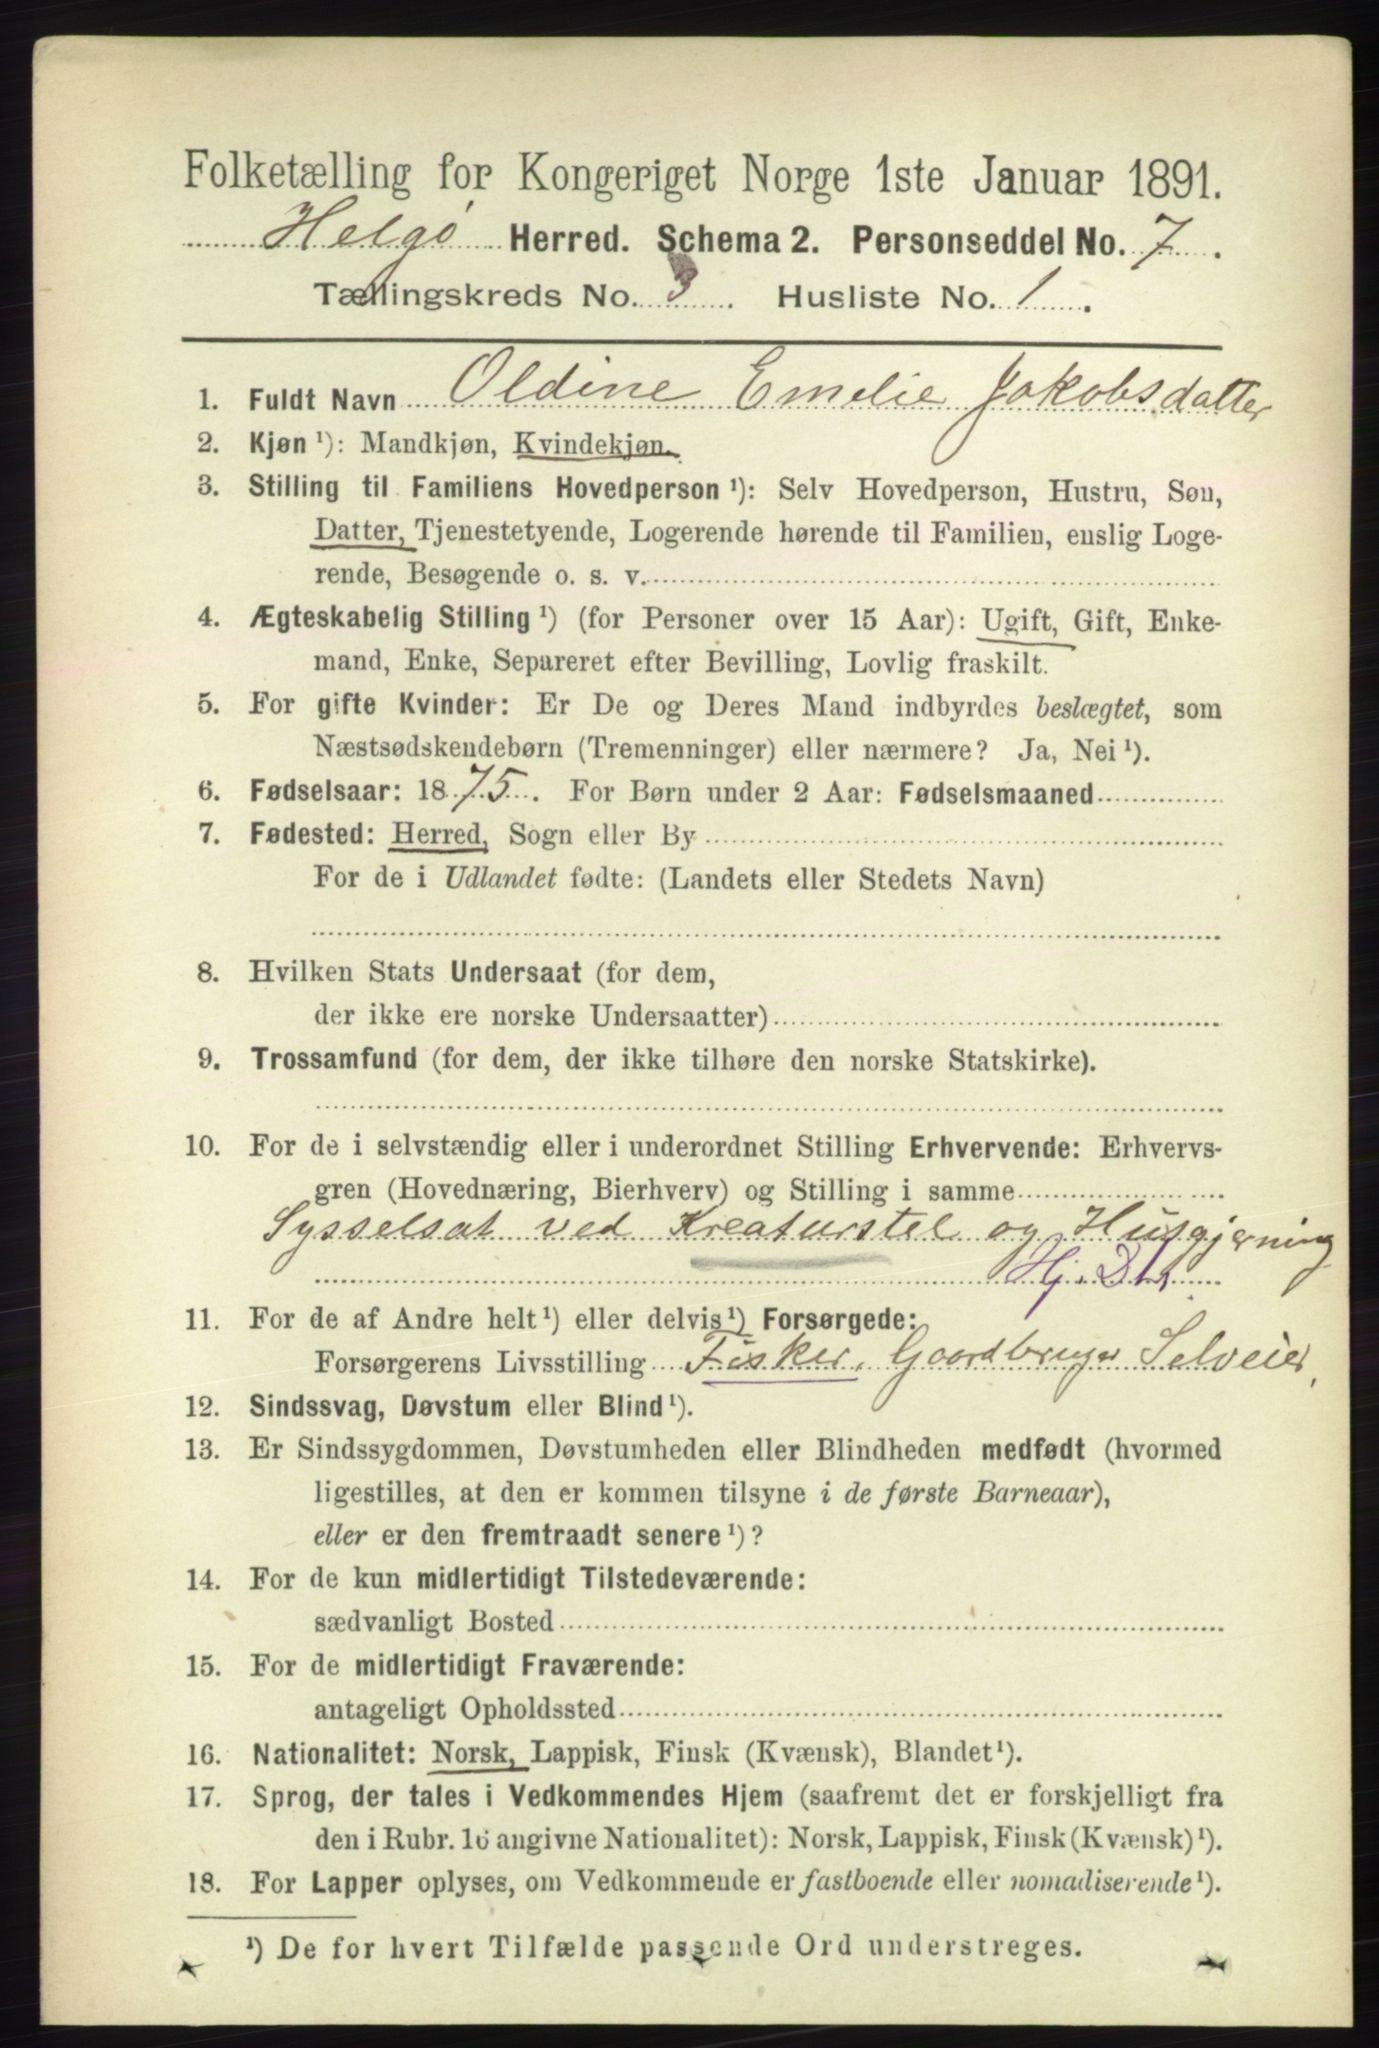 Folketælling for Kongeriget Norge 1ste Januar 1891.
Helgø Herred. Schema 2. Personseddel No. 7.
Tællingskreds No. 3. Husliste No. 1.
1. Fuldt Navn Oldine Emelie Jakobsdatter
2. Kjøn ¹): Mandkjøn, Kvindekjøn.
3. Stilling til Familiens Hovedperson ¹): Selv Hovedperson, Hustru, Søn,
Datter, Tjenestetyende, Logerende hørende til Familien, enslig Loge-
rende, Besøgende o. s. v.
4. Ægteskabelig Stilling ¹) (for Personer over 15 Aar): Ugift, Gift, Enke-
mand, Enke, Separeret efter Bevilling, Lovlig fraskilt.
5. For gifte Kvinder: Er De og Deres Mand indbyrdes beslægtet, som
Næstsødskendebørn (Tremenninger) eller nærmere? Ja, Nei ¹).
6. Fødselsaar: 1875. For Børn under 2 Aar: Fødselsmaaned
7. Fødested: Herred, Sogn eller By
For de i Udlandet fødte: (Landets eller Stedets Navn)
8. Hvilken Stats Undersaat (for dem,
der ikke ere norske Undersaatter)
9. Trossamfund (for dem, der ikke tilhøre den norske Statskirke).
10. For de i selvstændig eller i underordnet Stilling Erhvervende: Erhvervs-
gren (Hovednæring, Bierhverv) og Stilling i samme
Sysselsat ved Kreaturstel og Husgjerning
Hj.
11. For de af Andre helt ¹) eller delvis ¹) Forsørgede:
Forsørgerens Livsstilling Fisker, Gaardbruger Selveier,
12. Sindssvag, Døvstum eller Blind ¹).
13. Er Sindssygdommen, Døvstumheden eller Blindheden medfødt (hvormed
ligestilles, at den er kommen tilsyne i de første Barneaar),
eller er den fremtraadt senere ¹)?
14. For de kun midlertidigt Tilstedeværende:
sædvanligt Bosted
15. For de midlertidigt Fraværende:
antageligt Opholdssted
16. Nationalitet: Norsk, Lappisk, Finsk (Kvænsk), Blandet ¹).
17. Sprog, der tales i Vedkommendes Hjem (saafremt det er forskjelligt fra
den i Rubr. 16 angivne Nationalitet): Norsk, Lappisk, Finsk (Kvænsk) ¹).
18. For Lapper oplyses, om Vedkommende er fastboende eller nomadiserende ¹).
¹) De for hvert Tilfælde passende Ord understreges.